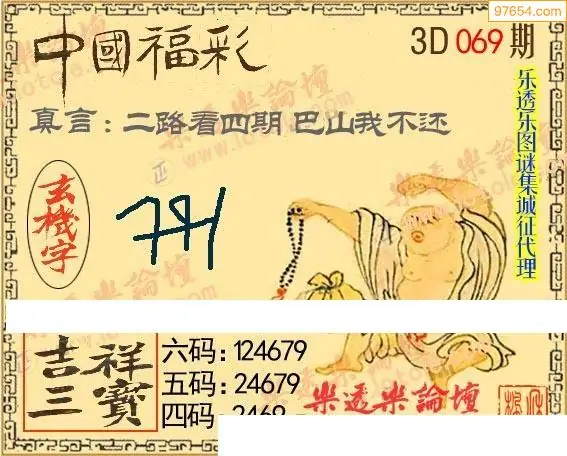 97654.com
中國福彩
3D 069 期
真言：二路看四期 巴山我不还
乐透乐图谜集城征代理
玄機字
吉祥三寶
六码：124679
五码：24679
四码：2469
樂透樂論壇